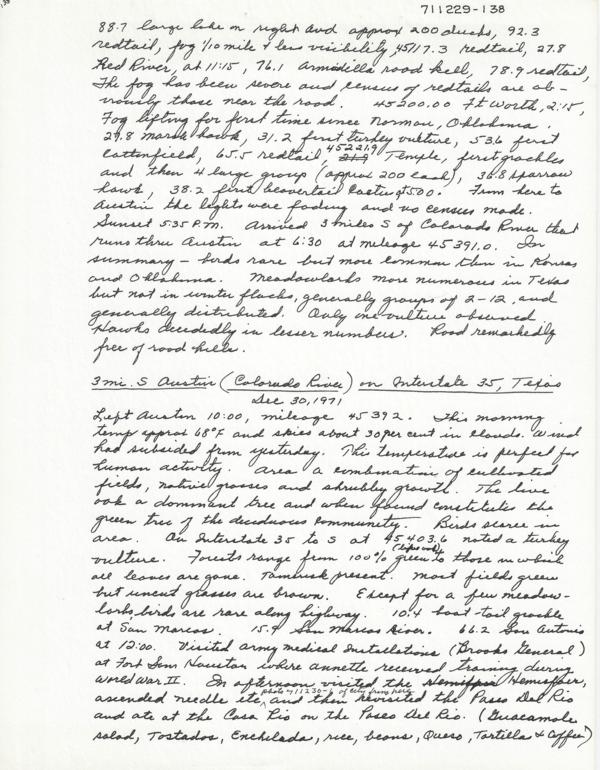 711229-138
88.7 large lake on right and approx 200 ducks, 92.3
redtail, fog 1/10 mile & less visibility, 45117.3 redtail, 27.8
Red River, at 11:15, 76.1 Armadilla road kill, 78.9 redtail,
The fog has been severe and census of redtails are ob-
viously those near the road. 45200.00 Ft Worth, 2:15,
Fog lifting for first time since Norman, Oklahoma.
29.8 marsh hawk, 31.2 first turkey vulture, 53.6 first
cottonfield, 65.5 redtail, 45221.9 Temple, first grackles
and then 4 large group (approx 200 each), 36.8 sparrow
hawk, 38.2 first beavertail cactus, at 5:00. From here to
Austin the lights were fading and no census made.
Sunset 5:35 P.M. Arrived 3 miles S of Colorado River that
runs thru Austin at 6:30 at mileage 45391.0. In
summary - birds rare but more common than in Kansas
and Oklahoma. Meadowlarks more numerous in Texas
but not in winter flocks, generally groups of 2-12, and
generally distributed. Only one vulture observed.
Hawks decidedly in lesser numbers. Road remarkedly
free of road kills.
3 mi. S Austin (Colorado River) on Interstate 35, Texas
Dec 30, 1971
Left Austin 10:00, mileage 45392. This morning
temp approx 68°F and skies about 30 per cent in clouds. Wind
had subsided from yesterday. This temperature is perfect for
human activity. Area a combination of cultivated
fields, native grasses and shrubby growth. The live
oak a dominant tree and when found constitutes the
green tree of the deciduous community. Birds scarce in
area. On Interstate 35 to S at 45403.6 noted a turkey
vulture. Forests range from 100% green (live oak) to those in which
all leaves are gone. Tamarisk present. Most fields green
but uncut grasses are brown. Except for a few meadow-
larks, birds are rare along highway. 10.4 boat tail grackle
at San Marcos. 15.4 San Marcos River. 66.2 San Antonio
at 12:00. Visited army medical installations (Brooks General)
at Fort Sam Houston where Annette received training during
World War II. In afternoon visited the Hemisfair,
ascended needle etc photo 711230-6 of city from here and then revisited the Paseo Del Rio
and ate at the Casa Rio on the Paseo Del Rio. (Guacamole
salad, Tostados, Enchilada, rice, beans, Queso, Tortilla & coffee)